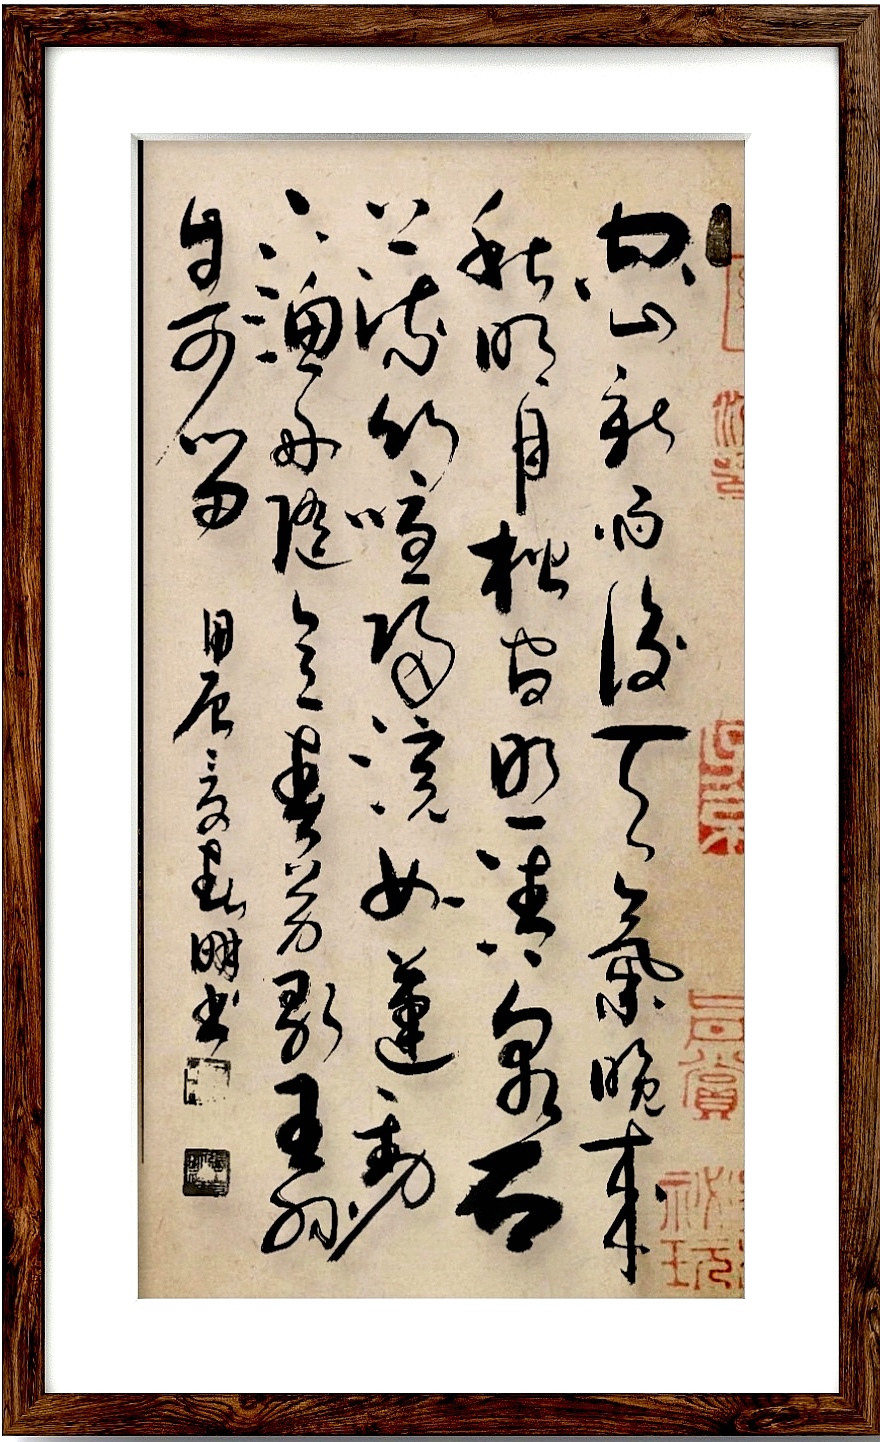 空山新雨後天氣晚來
秋明月松間照清泉石
上流竹喧歸浣女蓮動
下漁舟隨意春芳歇王孫
自可留 甲辰夏明书
真賞
祕玩